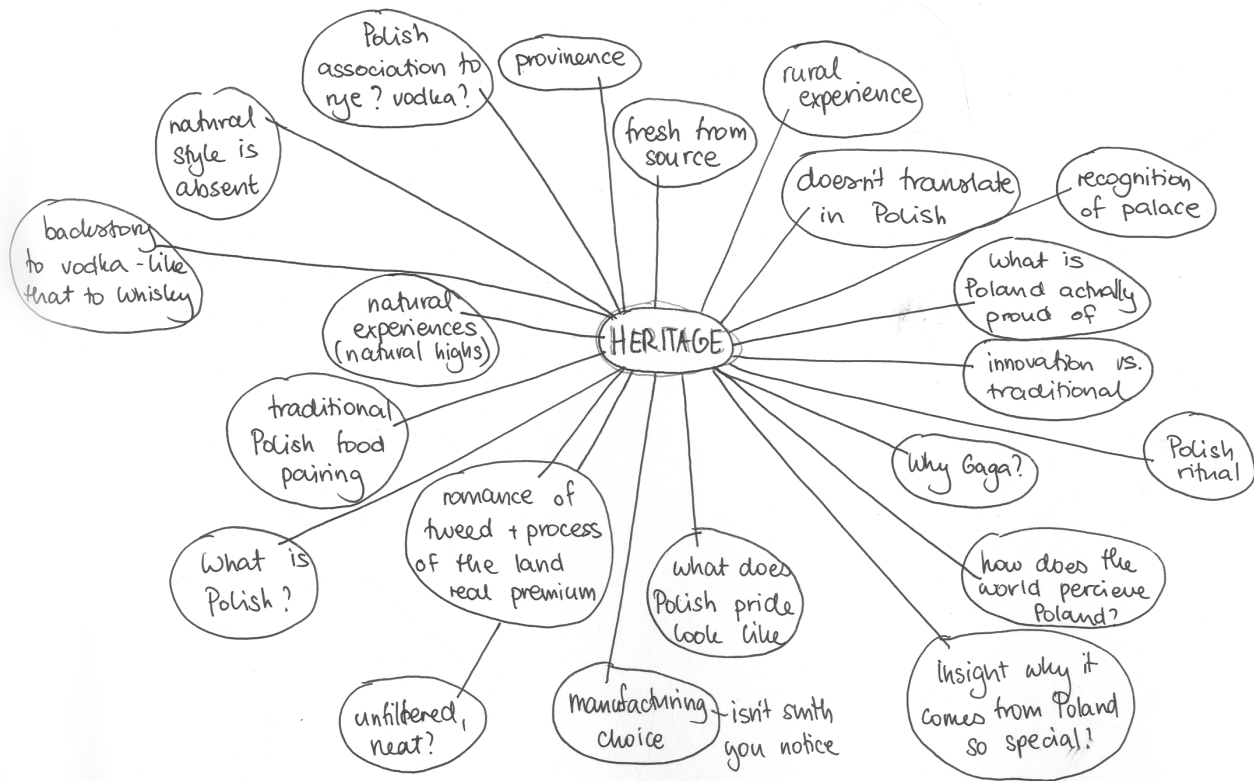 Polish
association to
rye? vodka?
provinence
rural
experience
natural
style is
absent
fresh from
source
doesn't translate
in Polish
recognition
of palace
backstory
to vodka-like
that to whisky
natural
experiences
(natural highs)
HERITAGE
What is
Poland actually
proud of
innovation vs.
traditional
traditional
Polish food
pairing
Why Gaga?
Polish
ritual
What is
Polish?
romance of
tweed + process
of the land
real premium
what does
Polish pride
look like
how does the
world percieve
Poland?
unfiltered,
neat?
manufacturing
choice
- isn't smth
you notice
Insight why it
comes from Poland
so special?